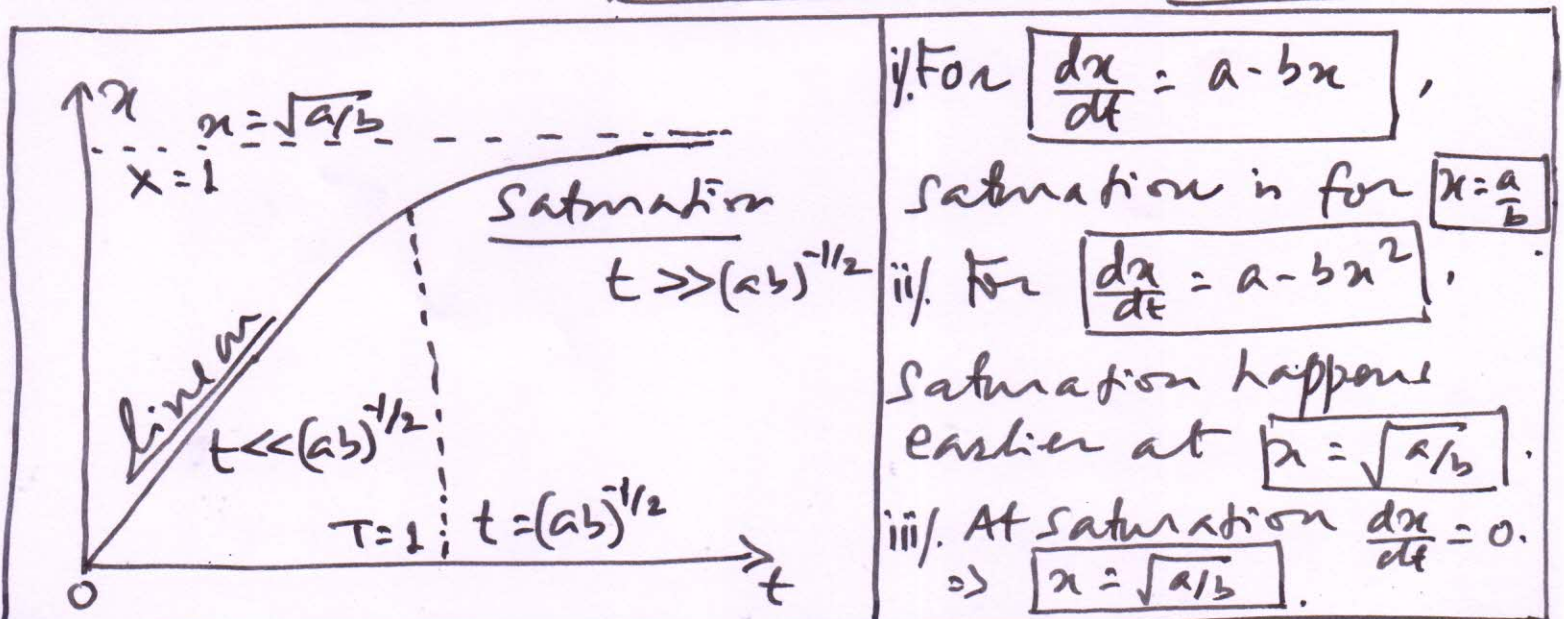 x
x = √a/b
X = 1
Saturation
t >> (ab)^-1/2
linear
t << (ab)^-1/2
T = 1
t = (ab)^-1/2
0
t
i/. For dx/dt = a - bx ,
saturation is for x = a/b .
ii/. For dx/dt = a - bx² .
Saturation happens
earlier at x = √a/b .
iii/. At saturation dx/dt = 0.
=> x = √a/b .